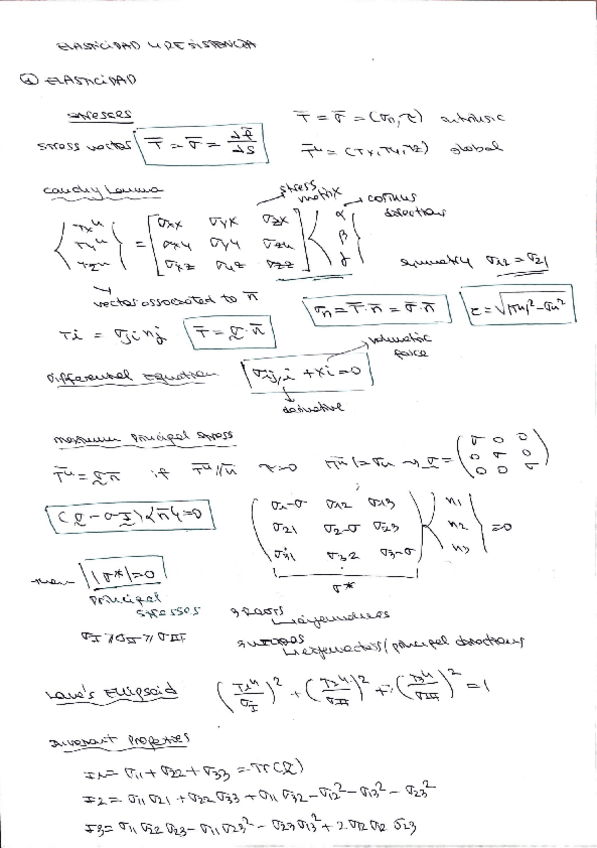 ELASTICIDAD Y RESISTENCIA
① ELASTICIDAD
stresses
T̄ = σ̄ = (σn, τ) intrinsic
stress vector T̄ = σ̄ = ΔF̄/ΔS
T̄ⁿ = (Tx, Ty, Tz) global
Cauchy Lemma
stress matrix
cosinus directions
{Txⁿ Tyⁿ Tzⁿ} = [σxx σyx σzx; σxy σyy σzy; σxz σyz σzz] {α β γ}
symmetry σ12 = σ21
vector associated to n̄
σn = T̄·n̄ = σ̄·n̄
τ = √|Tⁿ|² - σn²
Ti = σji nj
T̄ = σ·n̄
volumetric force
Differential Equation
σij,i + xi = 0
derivative
maximum principal stress
T̄ⁿ = σn̄ if T̄ⁿ // n̄ τ=0 |T̄ⁿ| = σn → σ = (σ 0 0; 0 σ 0; 0 0 σ)
(σ - σI){n̄} = 0
(σ1-σ σ12 σ13; σ21 σ2-σ σ23; σ31 σ32 σ3-σ) {n1 n2 n3} = 0
σ*
then |σ*| = 0
principal stresses
3 roots
eigenvalues
σI ≥ σII ≥ σIII
eigenvectors / principal directions
Lamé's Ellipsoid (T1ⁿ/σI)² + (T2ⁿ/σII)² + (T3ⁿ/σIII)² = 1
Invariant Properties
I1 = σ11 + σ22 + σ33 = Tr(σ)
I2 = σ11 σ21 + σ22 σ33 + σ11 σ32 - σ12² - σ13² - σ23²
I3 = σ11 σ22 σ23 - σ11 σ23² - σ23 σ13² + 2 σ12 σ12 σ23